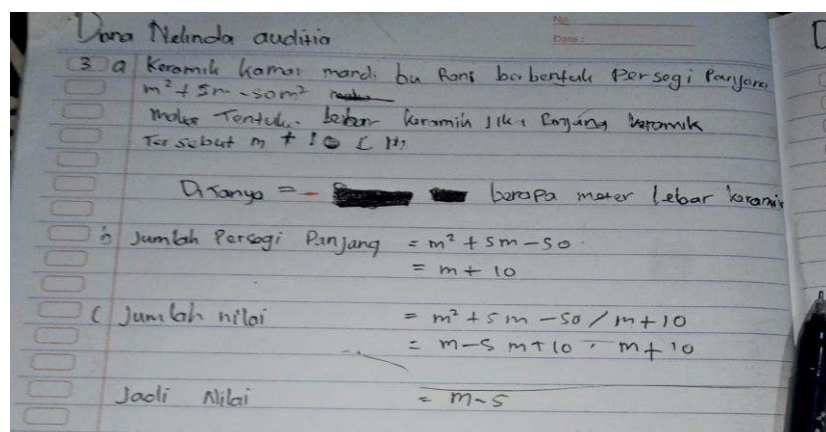 Dona Nelinda auditia
No.
Date :
3 a Keramik kamar mandi bu Rani berbentuk Persegi Panjang
m² + 5m - 50 m²
maka Tentukan lebar keramik jika Panjang keramik
Tersebut m + 10
Ditanya = - berapa meter lebar keramik
b Jumlah Persegi Panjang = m² + 5m - 50
= m + 10
C Jumlah nilai = m² + 5m - 50 / m + 10
= m - 5 m + 10 : m + 10
Jadi Nilai = m - 5